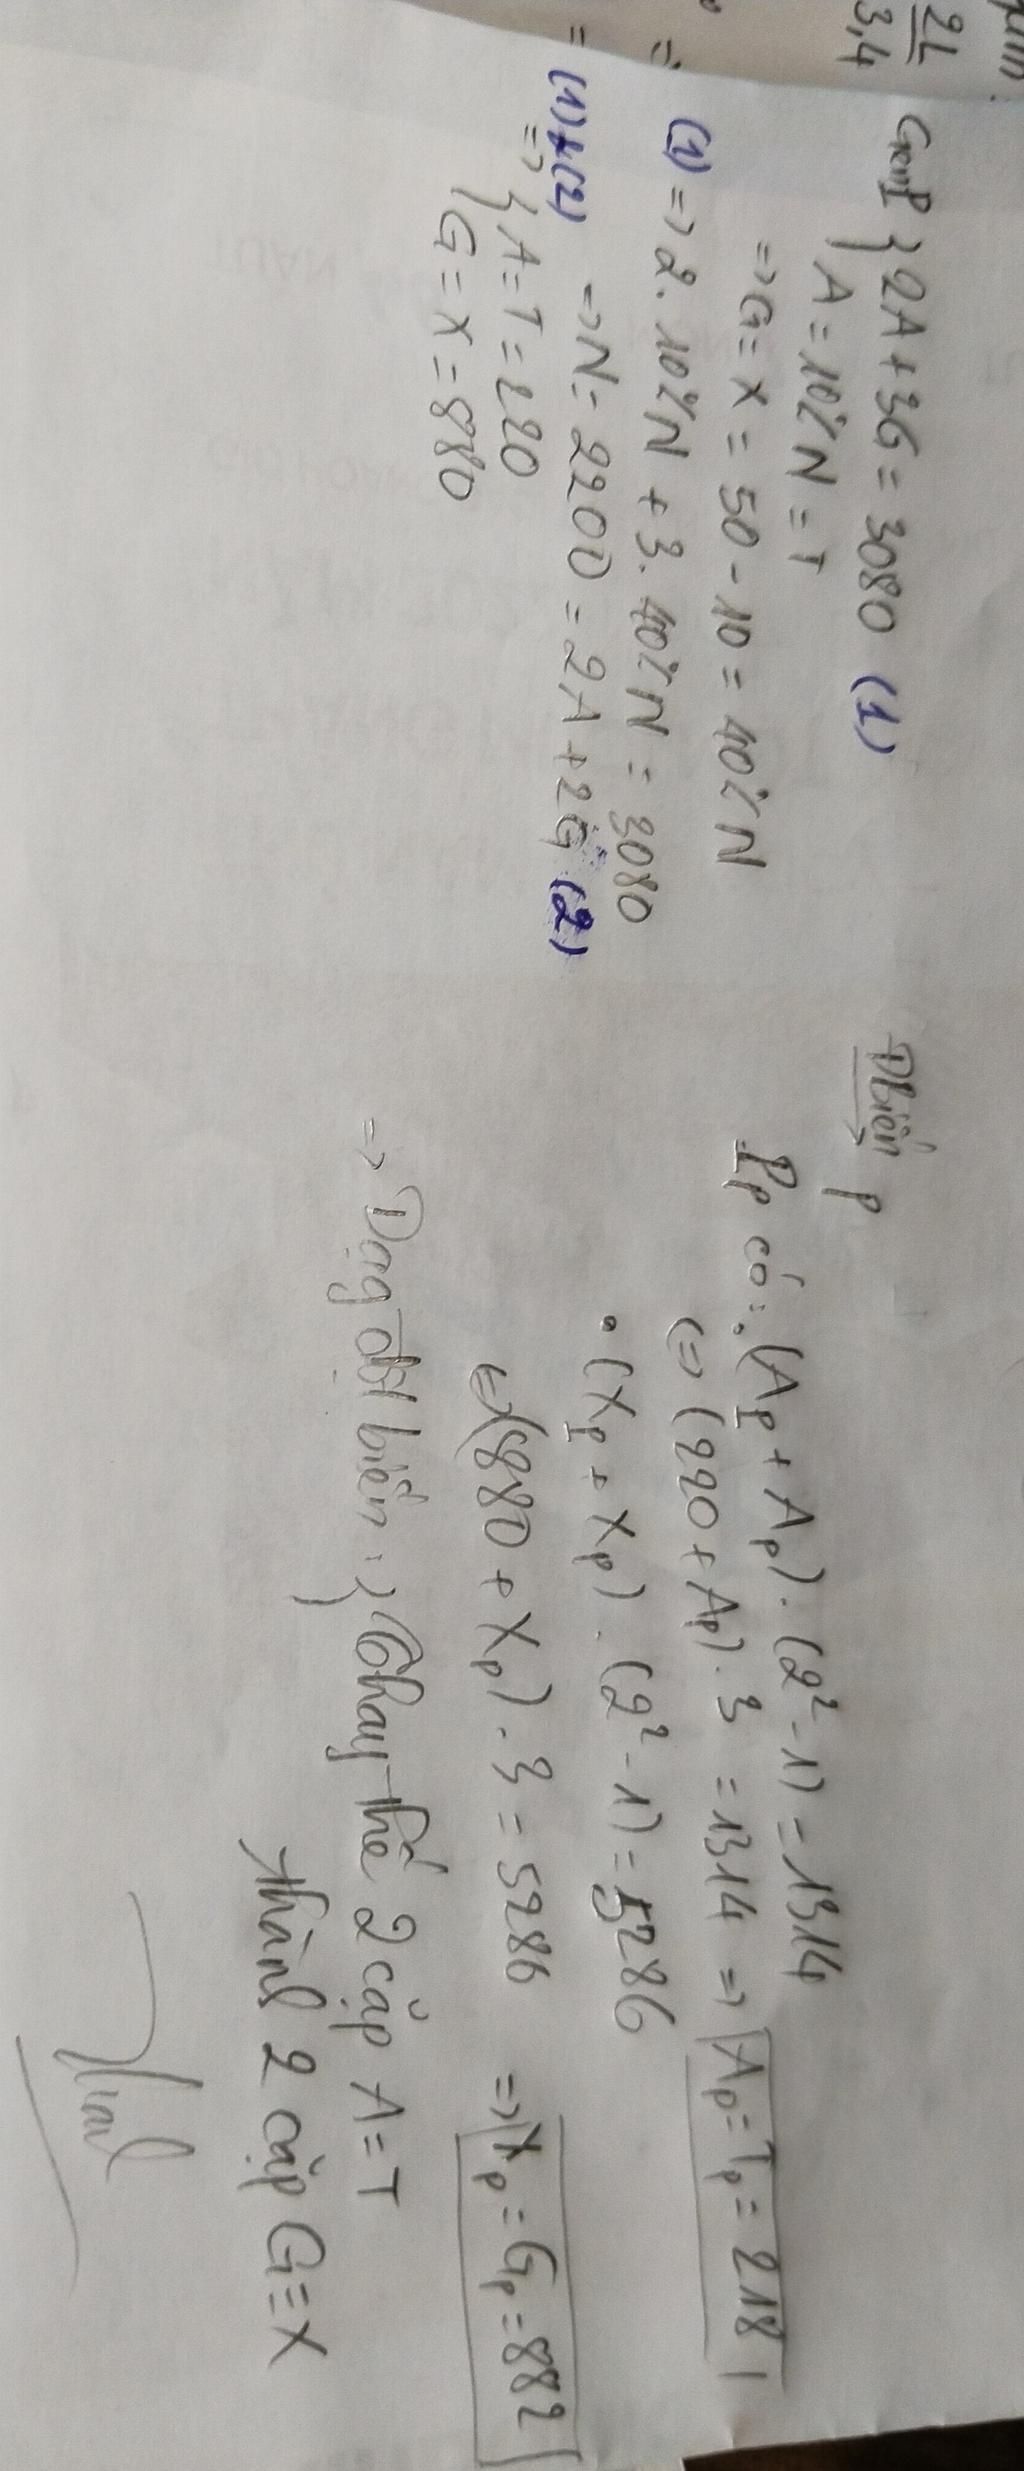 21
3,4
Gen P { 2A + 3G = 3080 (1)
A = 10% N = T
=> G = X = 50 - 10 = 40% N
(1) => 2. 10% N + 3. 40% N = 3080
=> N = 2200 = 2A + 2G (2)
(1)+(2)
=> { A = T = 220
G = X = 880
Đbiến p
Pp có: . (AP + Ap) . (2² - 1) = 1314
<=> (220 + Ap) . 3 = 1314 => Ap = Tp = 218
• (XP + Xp) . (2² - 1) = 5286
<=> (880 + Xp) . 3 = 5286 => Xp = Gp = 882
=> Dạng đột biến : } Thay thế 2 cặp A = T
thành 2 cặp G ≡ X